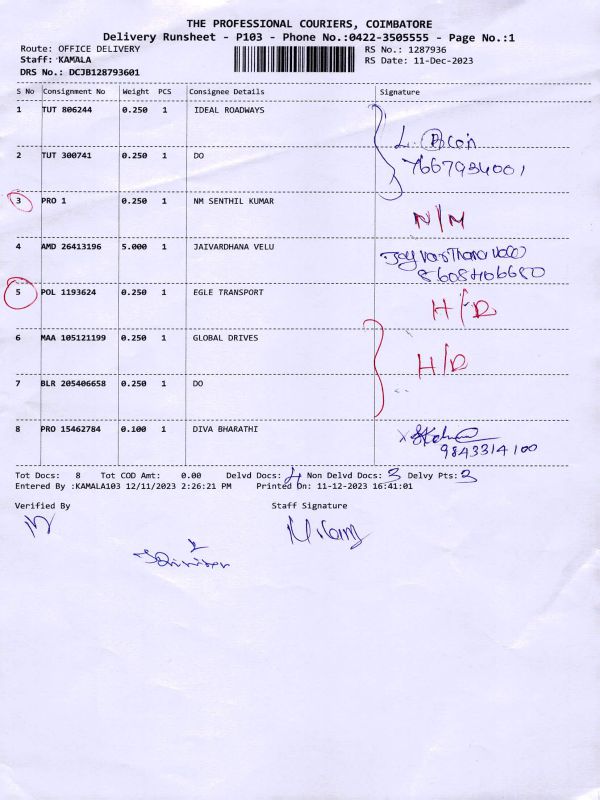 THE PROFESSIONAL COURIERS, COIMBATORE
Delivery Runsheet - P103 - Phone No.:0422-3505555 - Page No.:1
Route: OFFICE DELIVERY RS No.: 1287936
Staff: KAMALA RS Date: 11-Dec-2023
DRS No.: DCJB128793601
S No Consignment No Weight PCS Consignee Details Signature
1 TUT 806244 0.250 1 IDEAL ROADWAYS
7667934001
2 TUT 300741 0.250 1 DO
3 PRO 1 0.250 1 NM SENTHIL KUMAR N/M
4 AMD 26413196 5.000 1 JAIVARDHANA VELU
8608406680
5 POL 1193624 0.250 1 EGLE TRANSPORT H/D
6 MAA 105121199 0.250 1 GLOBAL DRIVES H/D
7 BLR 205406658 0.250 1 DO
8 PRO 15462784 0.100 1 DIVA BHARATHI
9843314100
Tot Docs: 8 Tot COD Amt: 0.00 Delvd Docs: 4 Non Delvd Docs: 3 Delvy Pts: 3
Entered By :KAMALA103 12/11/2023 2:26:21 PM Printed On: 11-12-2023 16:41:01
Verified By Staff Signature